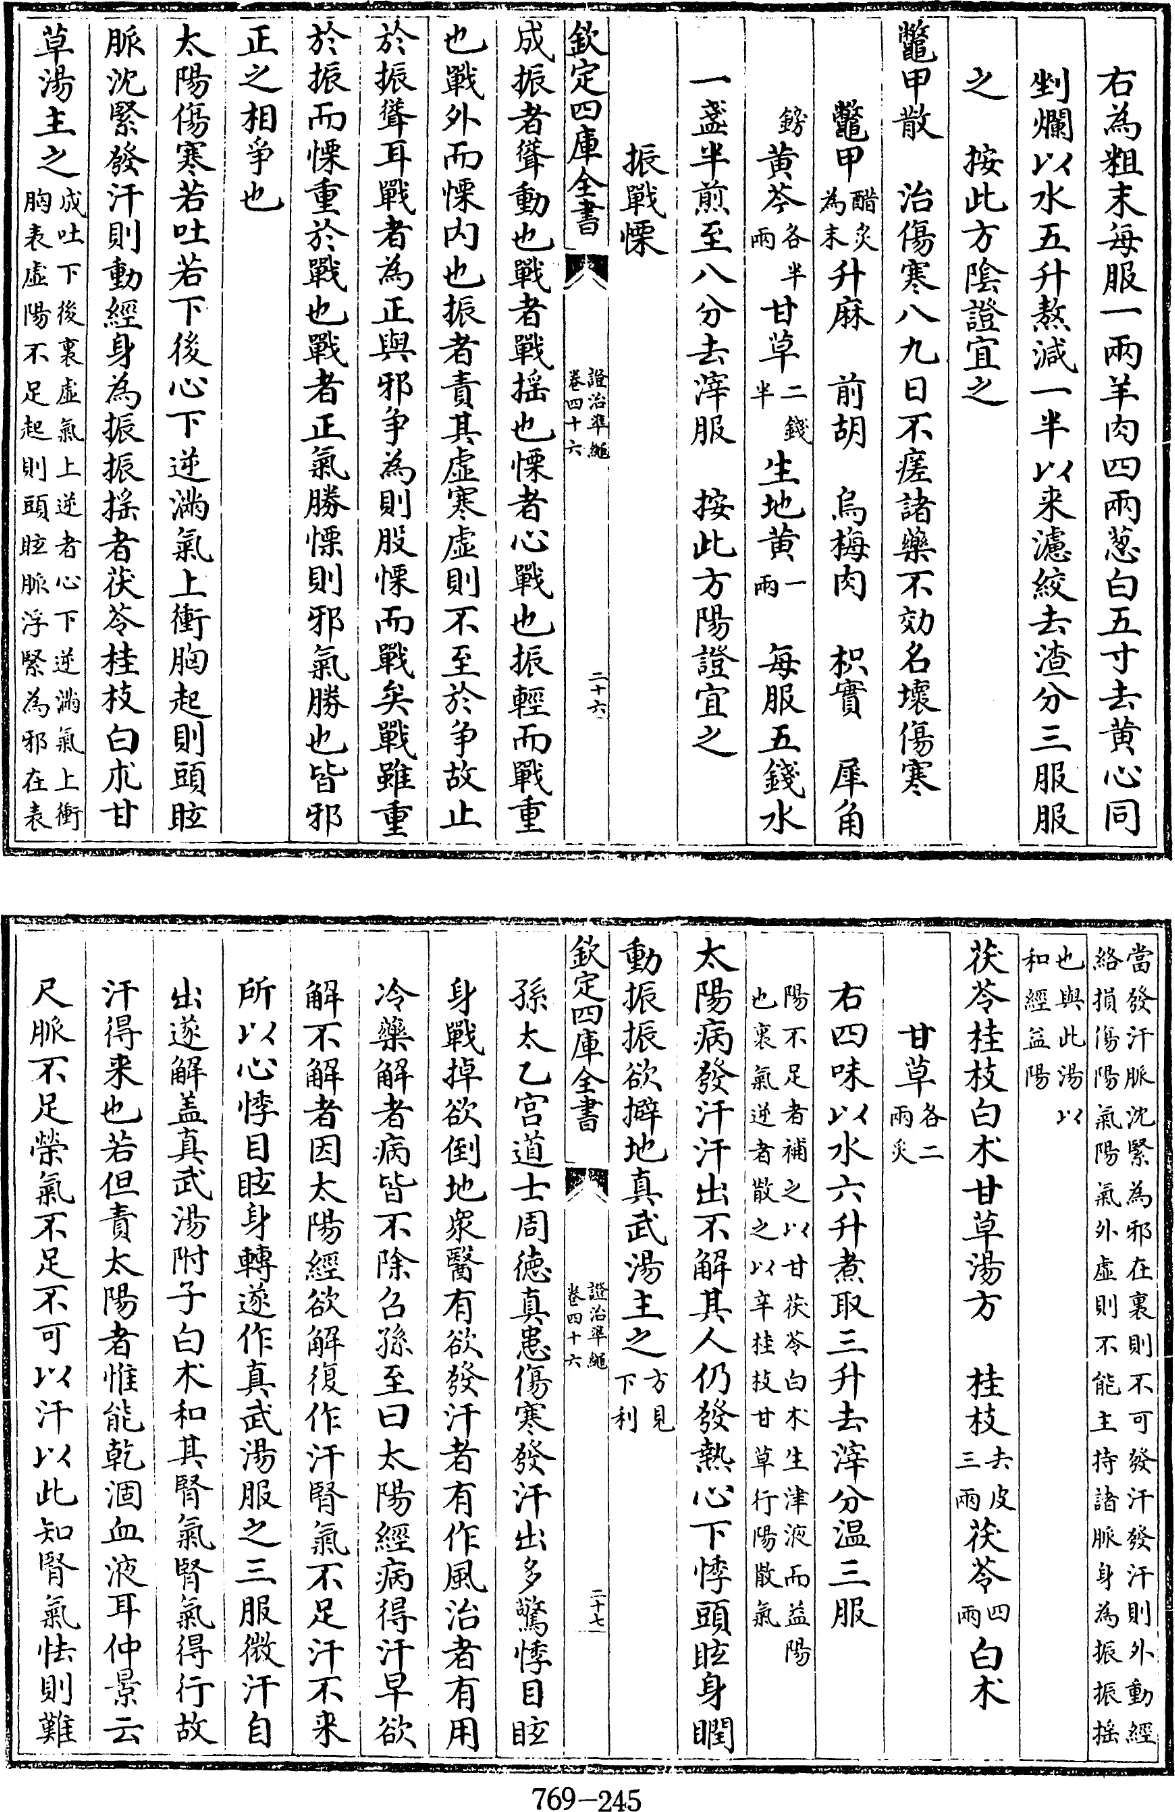 右為粗末每服一兩羊肉四兩葱白五寸去黄心同
剉爛以水五升熬減一半以来濾絞去渣分三服服
之　按此方陰證宜之
鼈甲散　治傷寒八九日不瘥諸藥不効名壞傷寒
鼈甲醋炙為末升麻　前胡　烏梅肉　枳實　犀角
鎊黄芩各半兩甘草二錢半生地黄一兩　每服五錢水
一盞半煎至八分去滓服　按此方陽證宜之
振戰慄
欽定四庫全書
證治準繩
卷四十六
二十六
成振者聳動也戰者戰揺也慄者心戰也振輕而戰重
也戰外而慄内也振者責其虚寒虚則不至於争故止
於振聳耳戰者為正與邪争為則股慄而戰矣戰雖重
於振而慄重於戰也戰者正氣勝慄則邪氣勝也皆邪
正之相争也
太陽傷寒若吐若下後心下逆滿氣上衝胸起則頭眩
脈沈緊發汗則動經身為振振揺者茯苓桂枝白朮甘
草湯主之成吐下後裏虚氣上逆者心下逆滿氣上衝
胸表虚陽不足起則頭眩脈浮緊為邪在表
當發汗脈沈緊為邪在裏則不可發汗發汗則外動經
絡損傷陽氣陽氣外虚則不能主持諸脈身為振振揺
也與此湯以
和經益陽
茯苓桂枝白朮甘草湯方　桂枝去皮三兩茯苓四兩白朮
甘草各二兩炙
右四味以水六升煮取三升去滓分温三服
陽不足者補之以甘茯苓白朮生津液而益陽
也裏氣逆者散之以辛桂枝甘草行陽散氣
太陽病發汗汗出不解其人仍發熱心下悸頭眩身瞤
動振振欲擗地真武湯主之方見下利
欽定四庫全書
證治準繩
卷四十六
二十七
孫太乙宫道士周徳真患傷寒發汗出多驚悸目眩
身戰掉欲倒地衆醫有欲發汗者有作風治者有用
冷藥解者病皆不除召孫至曰太陽經病得汗早欲
解不解者因太陽經欲解復作汗腎氣不足汗不来
所以心悸目眩身轉遂作真武湯服之三服微汗自
出遂解盖真武湯附子白朮和其腎氣腎氣得行故
汗得来也若但責太陽者惟能乾涸血液耳仲景云
尺脈不足榮氣不足不可以汗以此知腎氣怯則難
769-245